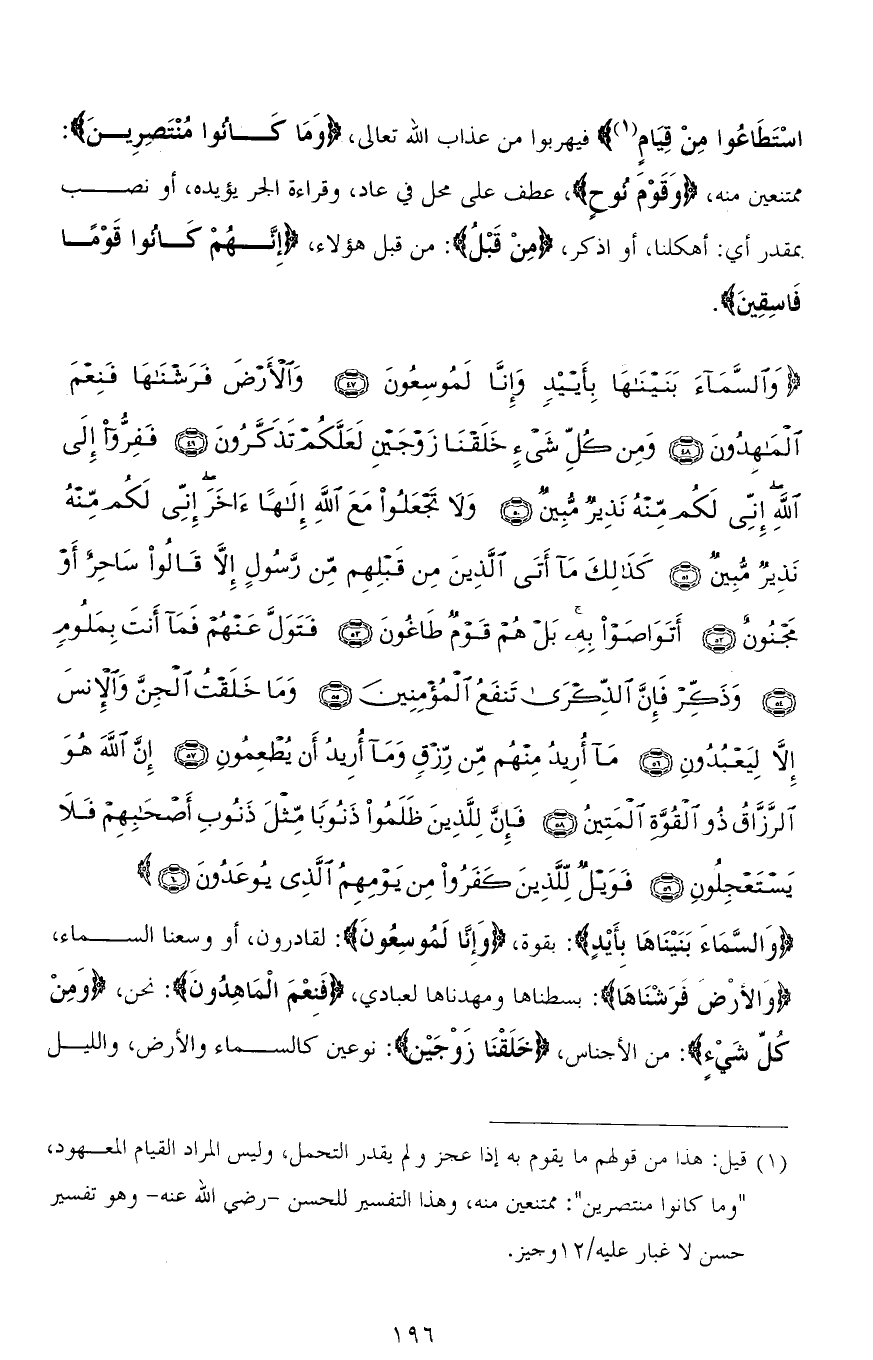 اسْتَطَاعُوا مِنْ قِيَامٍ(١)﴾ فيهربوا من عذاب الله تعالى، ﴿وَمَا كَـــانُوا مُنْتَصِرِيــنَ﴾:
ممتنعين منه، ﴿وَقَوْمَ نُوحٍ﴾، عطف على محل في عاد، وقراءة الجر يؤيده، أو نصـــب
بمقدر أي: أهلكلنا، أو اذكر، ﴿مِنْ قَبْلُ﴾: من قبل هؤلاء، ﴿إِنَّـــهُمْ كَــانُوا قَوْمًــا
فَاسِقِينَ﴾.
﴿وَٱلسَّمَآءَ بَنَيْنَٰهَا بِأَيْي۟دٍ وَإِنَّا لَمُوسِعُونَ ٤٧ وَٱلْأَرْضَ فَرَشْنَٰهَا فَنِعْمَ
ٱلْمَٰهِدُونَ ٤٨ وَمِن كُلِّ شَىْءٍ خَلَقْنَا زَوْجَيْنِ لَعَلَّكُمْ تَذَكَّرُونَ ٤٩ فَفِرُّوٓا۟ إِلَى
ٱللَّهِ ۖ إِنِّى لَكُم مِّنْهُ نَذِيرٌ مُّبِينٌ ٥٠ وَلَا تَجْعَلُوا۟ مَعَ ٱللَّهِ إِلَٰهًا ءَاخَرَ ۖ إِنِّى لَكُم مِّنْهُ
نَذِيرٌ مُّبِينٌ ٥١ كَذَٰلِكَ مَآ أَتَى ٱلَّذِينَ مِن قَبْلِهِم مِّن رَّسُولٍ إِلَّا قَالُوا۟ سَاحِرٌ أَوْ
مَجْنُونٌ ٥٢ أَتَوَاصَوْا۟ بِهِۦ ۚ بَلْ هُمْ قَوْمٌ طَاغُونَ ٥٣ فَتَوَلَّ عَنْهُمْ فَمَآ أَنتَ بِمَلُومٍ
٥٤ وَذَكِّرْ فَإِنَّ ٱلذِّكْرَىٰ تَنفَعُ ٱلْمُؤْمِنِينَ ٥٥ وَمَا خَلَقْتُ ٱلْجِنَّ وَٱلْإِنسَ
إِلَّا لِيَعْبُدُونِ ٥٦ مَآ أُرِيدُ مِنْهُم مِّن رِّزْقٍ وَمَآ أُرِيدُ أَن يُطْعِمُونِ ٥٧ إِنَّ ٱللَّهَ هُوَ
ٱلرَّزَّاقُ ذُو ٱلْقُوَّةِ ٱلْمَتِينُ ٥٨ فَإِنَّ لِلَّذِينَ ظَلَمُوا۟ ذَنُوبًا مِّثْلَ ذَنُوبِ أَصْحَٰبِهِمْ فَلَا
يَسْتَعْجِلُونِ ٥٩ فَوَيْلٌ لِّلَّذِينَ كَفَرُوا۟ مِن يَوْمِهِمُ ٱلَّذِى يُوعَدُونَ ٦٠﴾
﴿وَالسَّمَاءَ بَنَيْنَاهَا بِأَيْدٍ﴾: بقوة، ﴿وَإِنَّا لَمُوسِعُونَ﴾: لقادرون، أو وسعنا الســـماء،
﴿وَالأَرْضَ فَرَشْنَاهَا﴾: بسطناها ومهدناها لعبادي، ﴿فَنِعْمَ الْمَاهِدُونَ﴾: نحن، ﴿وَمِنْ
كُلِّ شَيْءٍ﴾: من الأجناس، ﴿خَلَقْنَا زَوْجَيْنِ﴾: نوعين كالســـماء والأرض، والليــل
(١) قيل: هذا من قولهم ما يقوم به إذا عجز ولم يقدر التحمل، وليس المراد القيام المعــهود،
"وما كانوا منتصرين": ممتنعين منه، وهذا التفسير للحسن -رضي الله عنه- وهو تفسير
حسن لا غبار عليه/١٢وجيز.
١٩٦